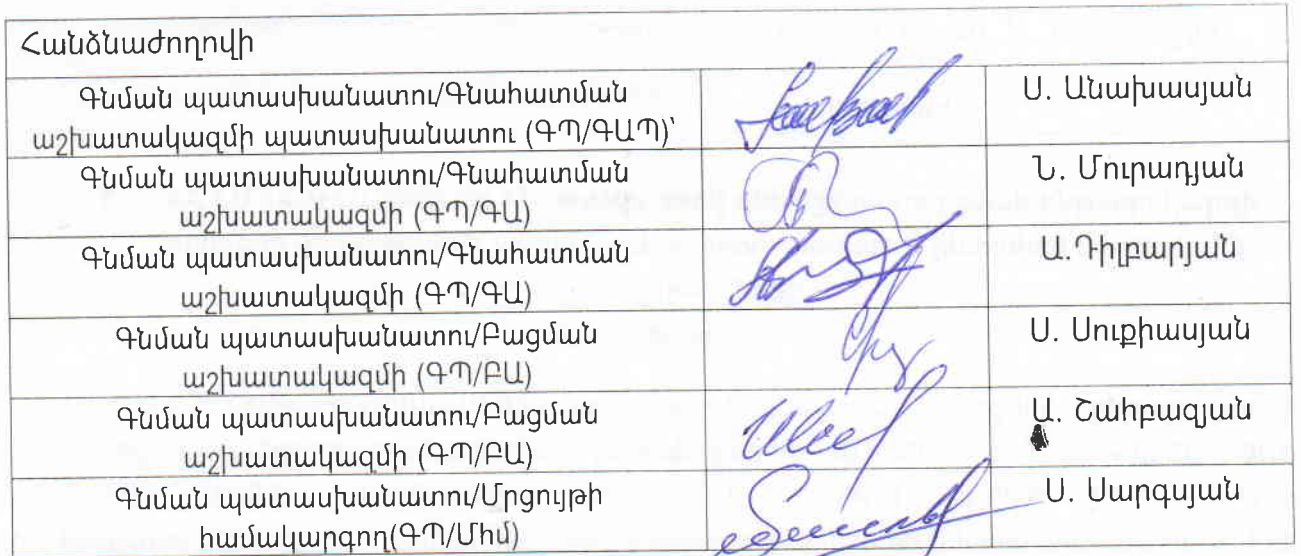 Հանձնաժողովի
Գնման պատասխանատու/Գնահատման
աշխատակազմի պատասխանատու (ԳՊ/ԳԱՊ)՝
Ս. Անախասյան
Գնման պատասխանատու/Գնահատման
աշխատակազմի (ԳՊ/ԳԱ)
Ն. Մուրադյան
Գնման պատասխանատու/Գնահատման
աշխատակազմի (ԳՊ/ԳԱ)
Ա.Դիլբարյան
Գնման պատասխանատու/Բացման
աշխատակազմի (ԳՊ/ԲԱ)
Ս. Սուքիասյան
Գնման պատասխանատու/Բացման
աշխատակազմի (ԳՊ/ԲԱ)
Ա. Շահբազյան
Գնման պատասխանատու/Մրցույթի
համակարգող(ԳՊ/Մհմ)
Ս. Սարգսյան